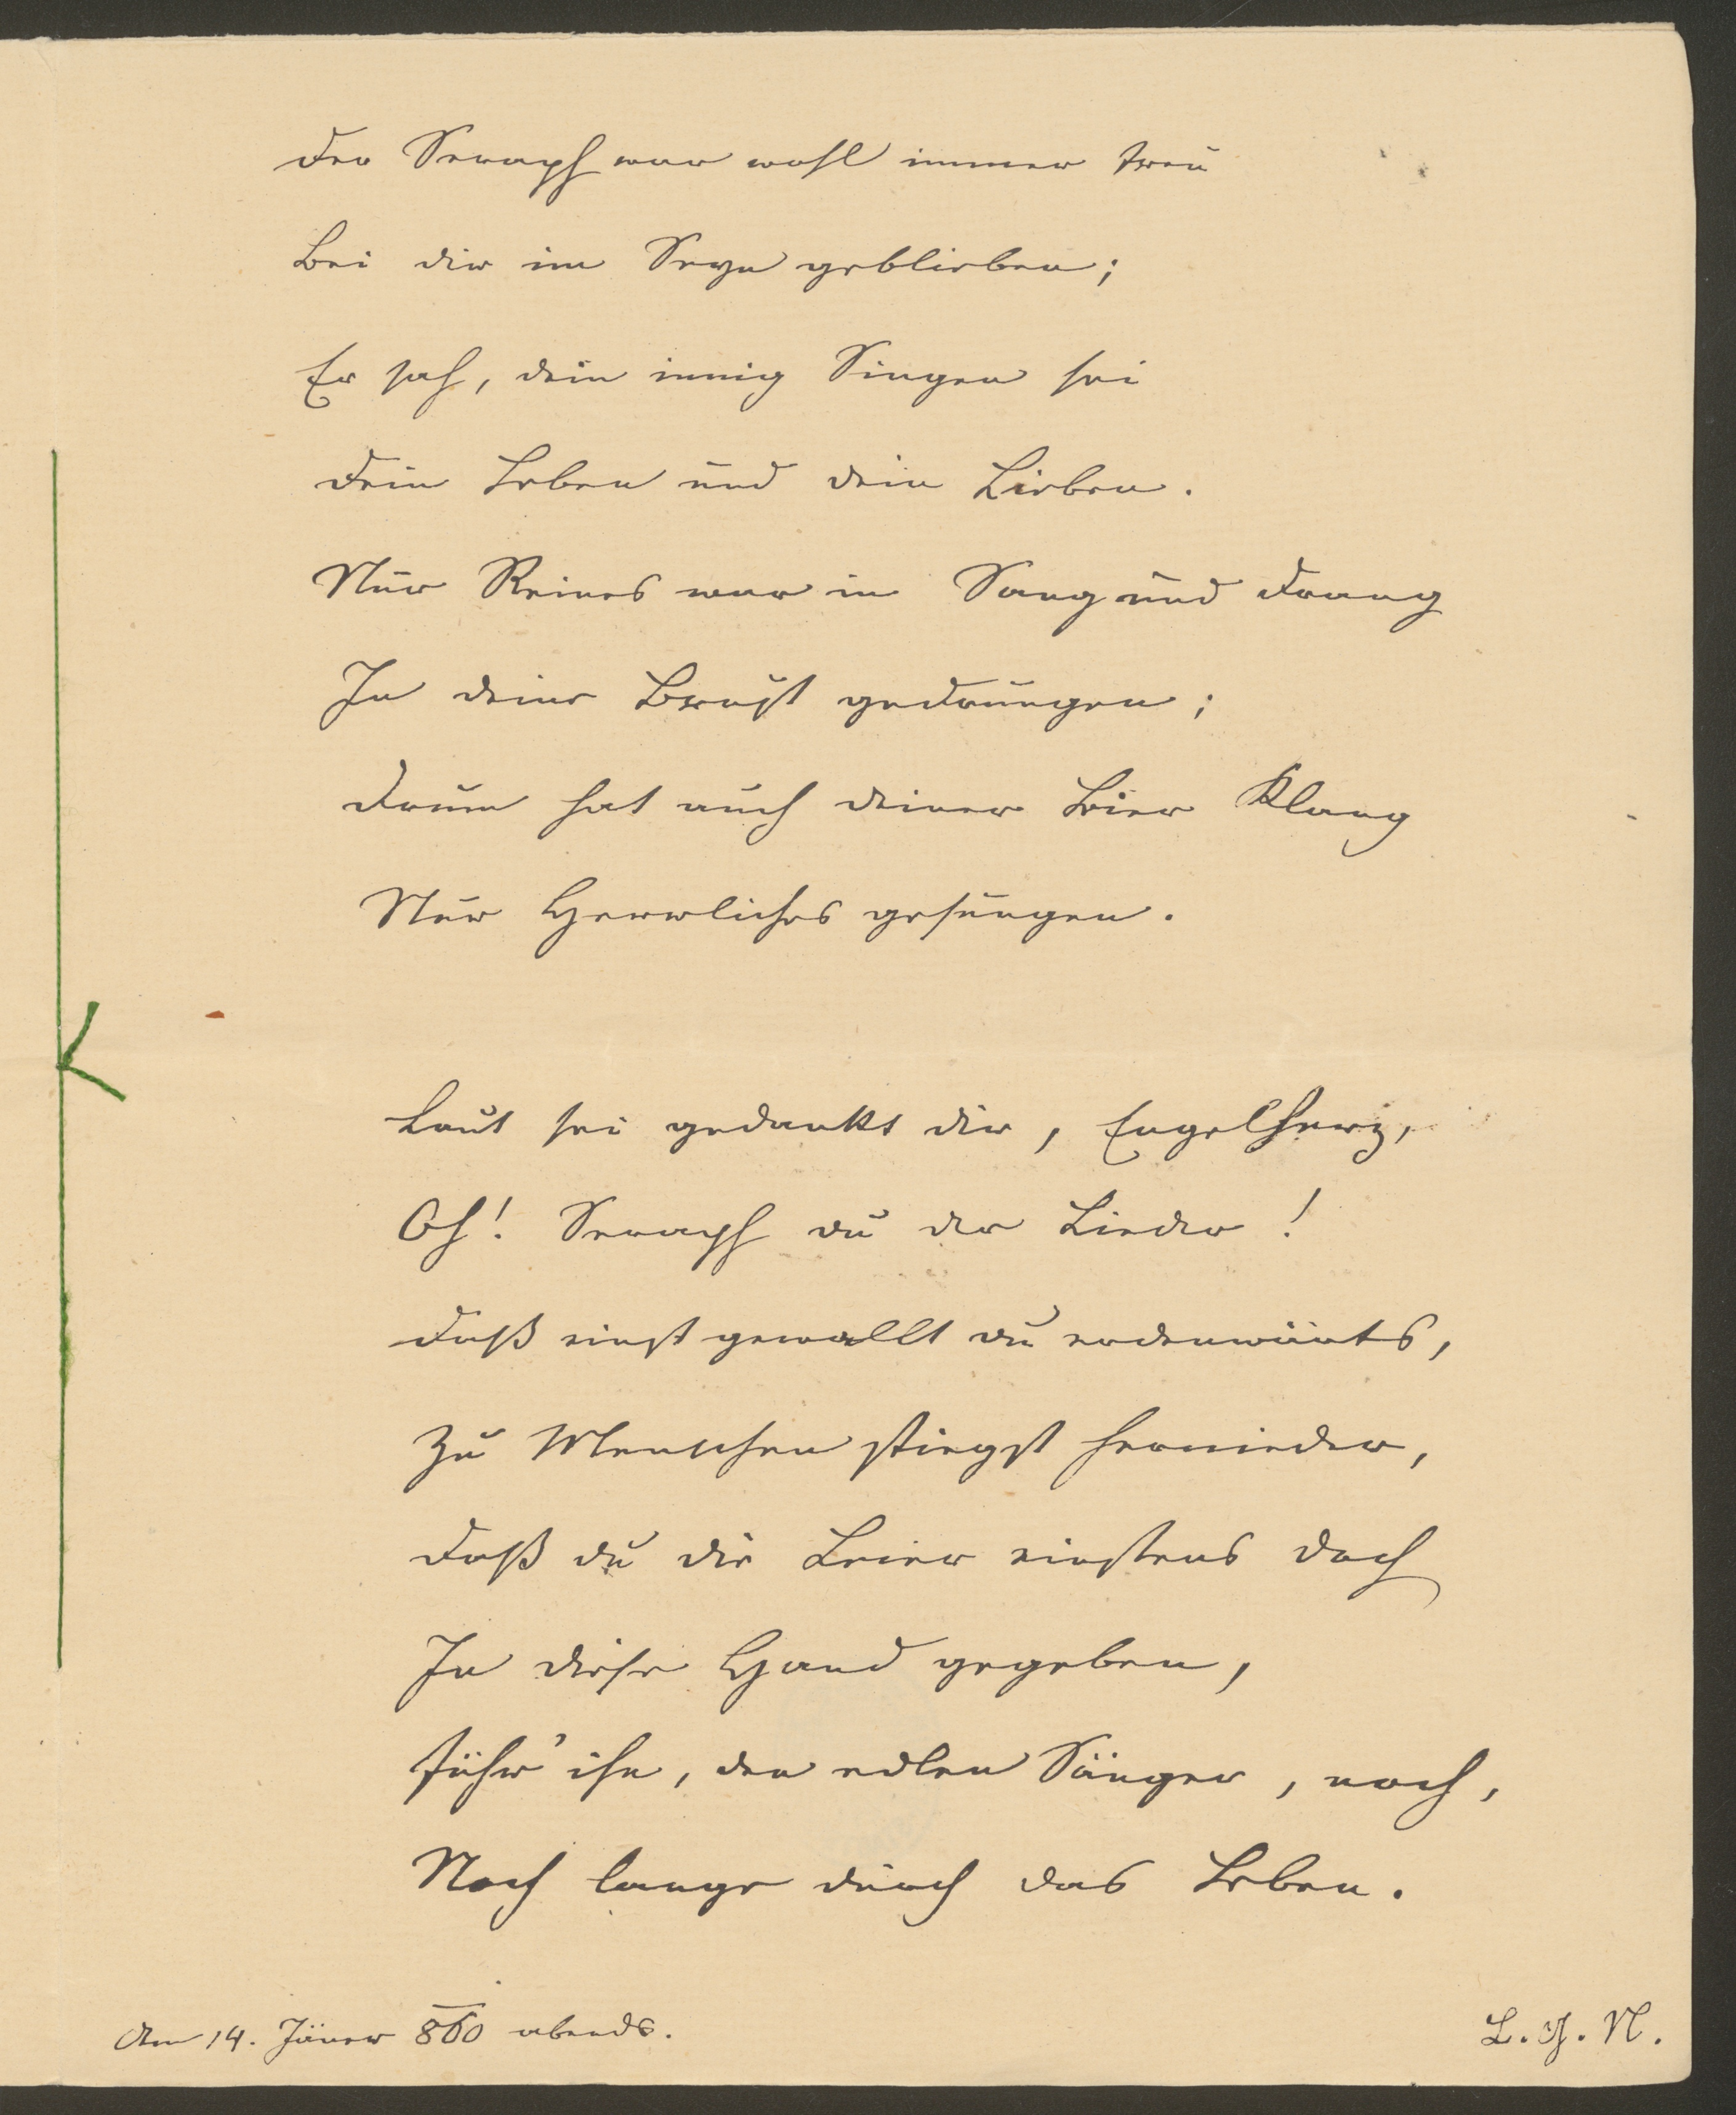 Der Seraph war wohl immer treu
Bei dir im Seyn geblieben;
Er sah, dein innig Singen sei
Dein Leben und dein Lieben.
Nur Reines war in Sang und Drang
In deine Brust gedrungen;
Drum hat auch deiner Leier Klang
Nur Herrliches gesungen.
Laut sei gedankt dir, Engelherz,
Oh! Seraph du der Lieder!
Daß einst gewallt du erdenwärts,
Zu Menschen stiegst hernieder,
Daß du die Leier einstens doch
In diese Hand gegeben,
Führ' ihn, den edlen Sänger, noch,
Noch lange durch das Leben.
Am 14. Jäner 860 abends.
L. J. N.